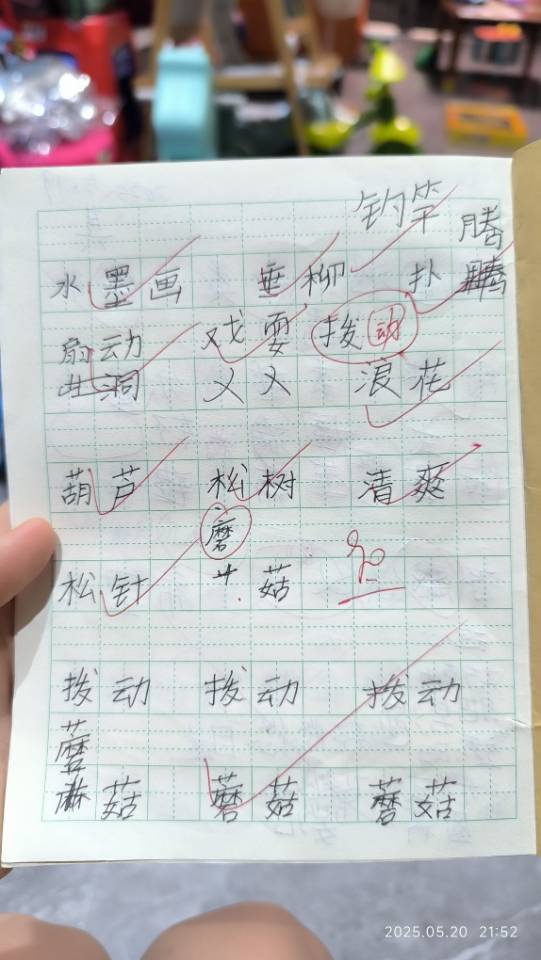 钓竿
腾
水墨画 垂柳 扑
扇动 戏耍 拨动
山洞 浪花
葫芦 松树 清爽
磨
松针 艹菇
拨动 拨动 拨动
蘑
菇 蘑菇 蘑菇
2025.05.20 21:52